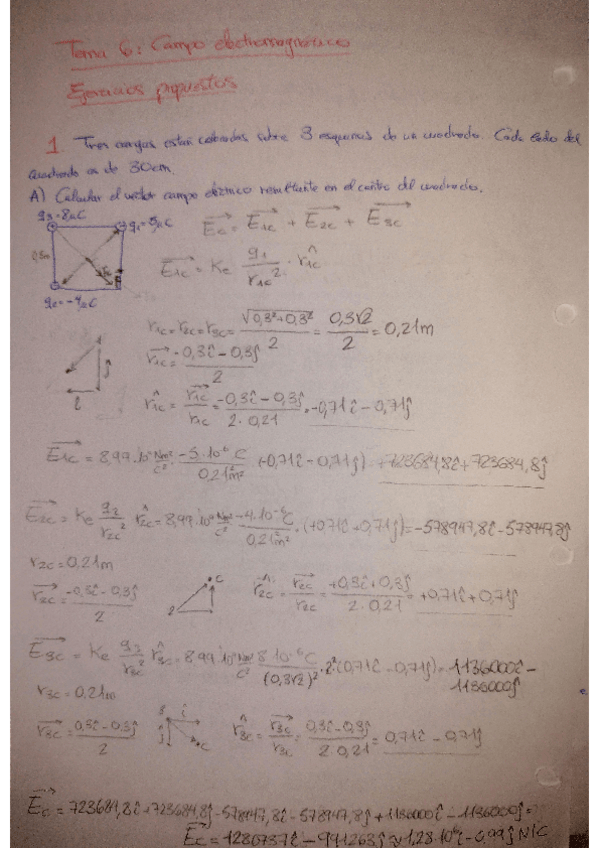 Tema 6: Campo electromagnético
Ejercicios propuestos
1 Tres cargas están colocadas sobre 3 esquinas de un cuadrado. Cada lado del
cuadrado es de 30cm.
A) Calcular el vector campo eléctrico resultante en el centro del cuadrado.
q3 = 8μC
q1 = -5μC
0,3m
q2 = -4μC
Ec = E1c + E2c + E3c
E1c = Ke q1/r1c² · r̂1c
r1c = r2c = r3c = √(0,3²+0,3²)/2 = 0,3√2/2 = 0,21m
r1c = (-0,3î - 0,3ĵ)/2
r̂1c = r1c/r1c = (-0,3î - 0,3ĵ)/(2·0,21) = -0,71î - 0,71ĵ
E1c = 8,99·10⁹ Nm²/C² · (-5·10⁻⁶C)/(0,21²m²) · (-0,71î - 0,71ĵ) = +723684,8î + 723684,8ĵ
E2c = Ke q2/r2c² r̂2c = 8,99·10⁹ Nm²/C² · (-4·10⁻⁶C)/(0,21²m²) · (+0,71î + 0,71ĵ) = -578947,8î - 578947,8ĵ
r2c = 0,21m
r2c = (-0,3î - 0,3ĵ)/2
2 C
r̂2c = r2c/r2c = (+0,3î + 0,3ĵ)/(2·0,21) = +0,71î + 0,71ĵ
E3c = Ke q3/r3c² r̂3c = 8,99·10⁹ Nm²/C² 8·10⁻⁶C/(0,3√2)² · 2²(0,71î - 0,71ĵ) = 1136000î -
1136000ĵ
r3c = 0,21m
r3c = (0,3î - 0,3ĵ)/2
3 î ĵ C
r̂3c = r3c/r3c = (0,3î - 0,3ĵ)/(2·0,21) = 0,71î - 0,71ĵ
Ec = 723684,8î + 723684,8ĵ - 578947,8î - 578947,8ĵ + 1136000î - 1136000ĵ =
Ec = 1280737î - 991263ĵ ≈ 1,28·10⁶î - 0,99ĵ N/C